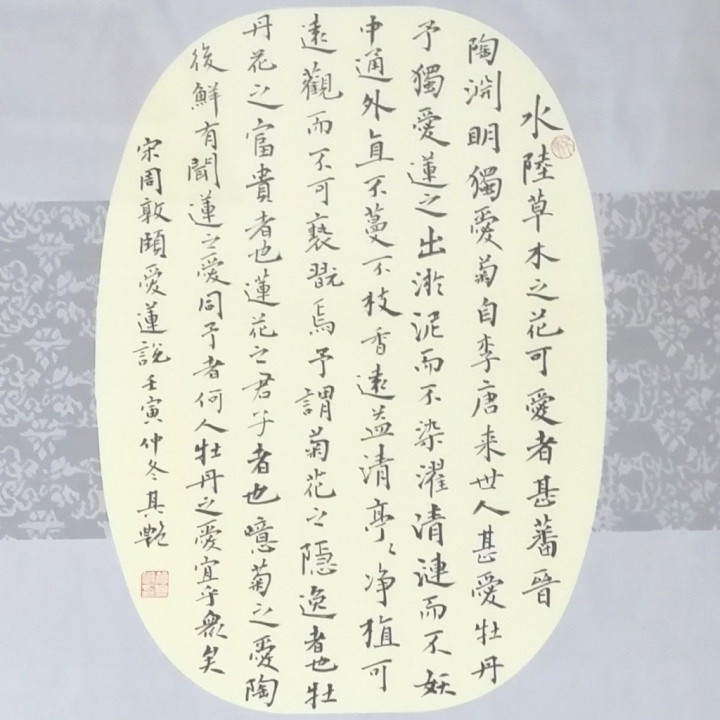 水陸草木之花可愛者甚蕃晉
陶淵明獨愛菊自李唐来世人甚愛牡丹
予獨愛蓮之出淤泥而不染濯清漣而不妖
中通外直不蔓不枝香遠益清亭〻净植可
遠觀而不可褻翫焉予謂菊花之隱逸者也牡
丹花之富貴者也蓮花之君子者也噫菊之愛陶
後鮮有聞蓮之愛同予者何人牡丹之愛宜乎衆矣
宋周敦頤愛蓮説壬寅仲冬其艷